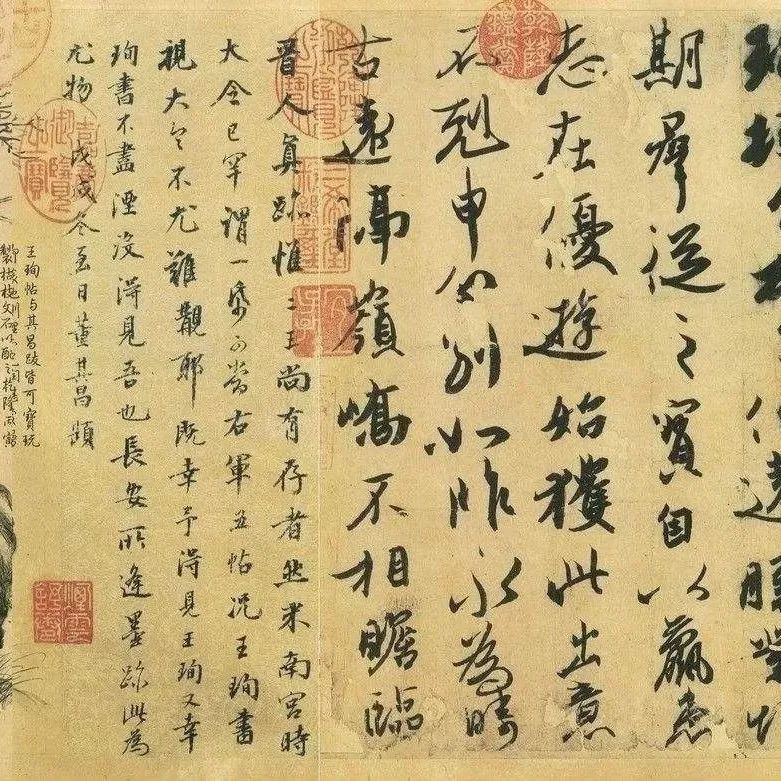 遠勝業情
期群從之寶自以羸患
志在優遊始獲此出意
不剋申分別如昨永為疇
古遠隔嶺嶠不相瞻臨
乾隆鑑賞
三希堂精鑑璽
宜子孫
晉人真跡惟二王尚有存者然米南宮時
大令已罕謂一紙可當右軍五帖況王珣書
視大令不尤難覯耶既幸予得見王珣又幸
珣書不盡湮沒得見吾也長安所逢墨跡此為
尤物戊戌冬至日董其昌題
王珣帖与其昌跋皆可寶玩